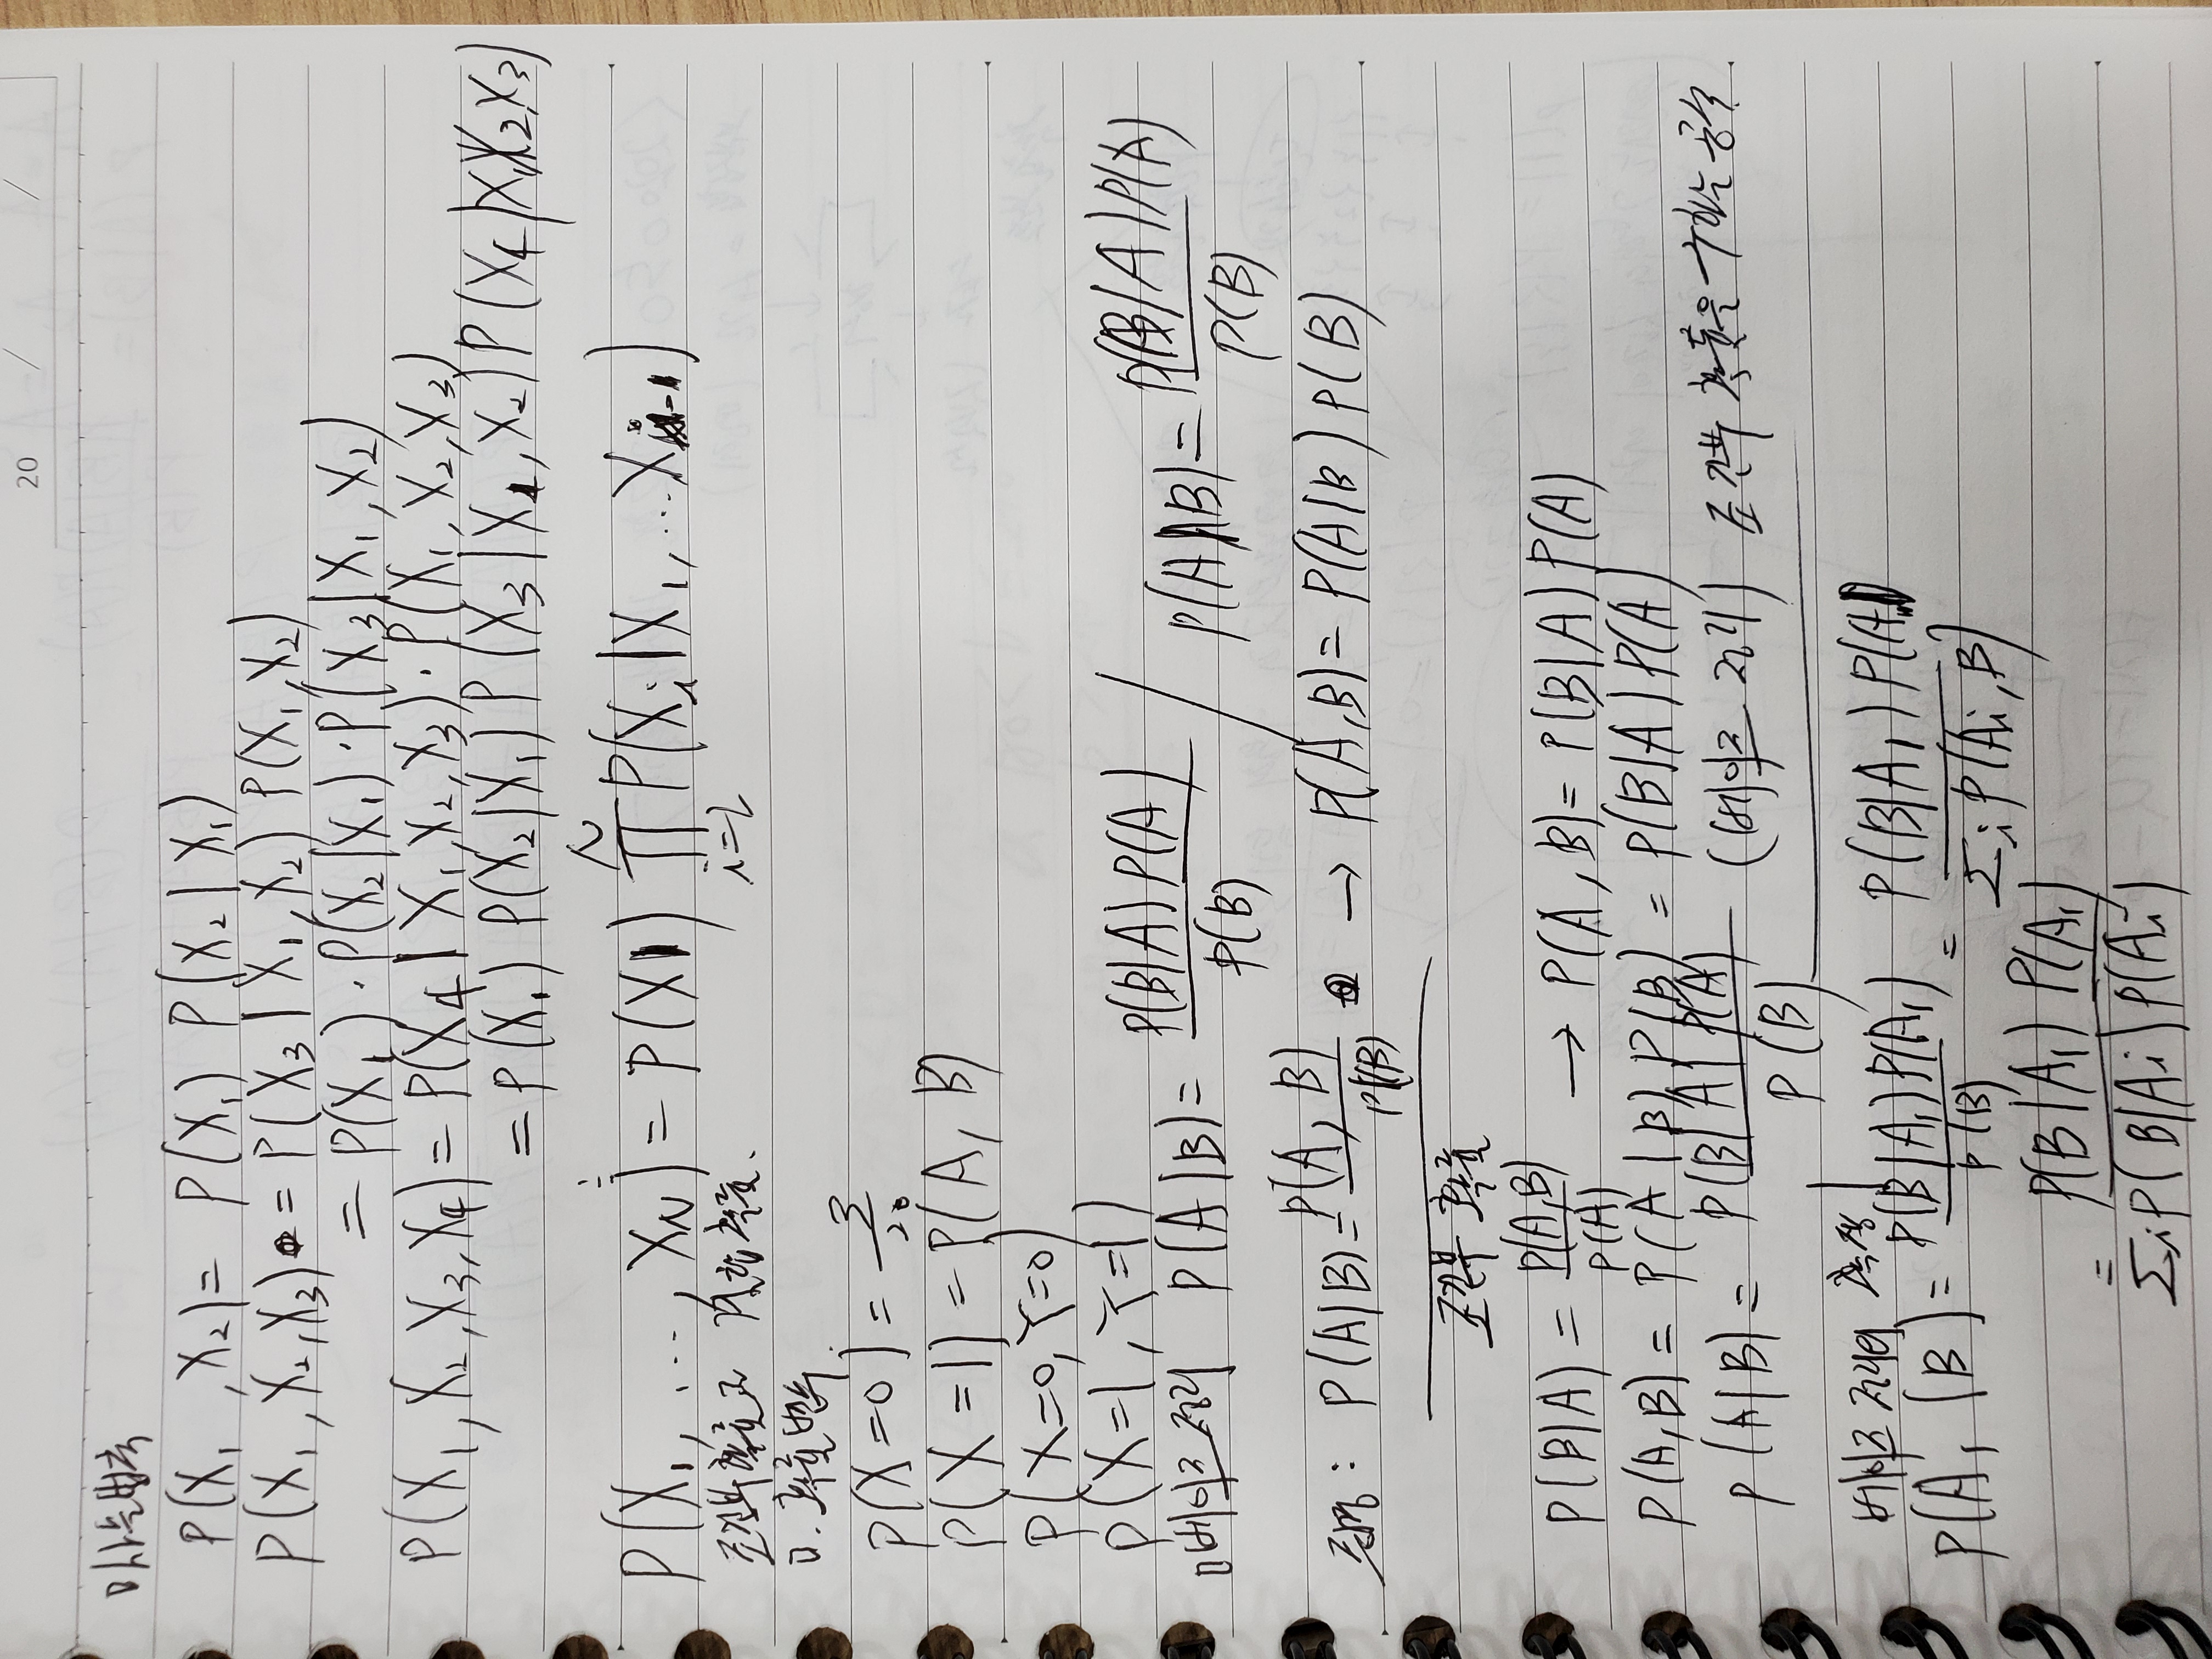 20 / /
□ 사슬법칙
P(X₁, X₂) = P(X₁) P(X₂ | X₁)
P(X₁, X₂, X₃) = P(X₃ | X₁, X₂) P(X₁, X₂)
= P(X₁) · P(X₂|X₁) · P(X₃|X₁, X₂)
P(X₁, X₂, X₃, X₄) = P(X₄ | X₁, X₂, X₃) · P(X₁, X₂, X₃)
= P(X₁) P(X₂|X₁) P(X₃ | X₁, X₂) P(X₄|X₁X₂X₃)
⋮
P(X₁, ..., X_N) = P(X1) ∏_{i=2}^{N} P(X_i | X₁, ... X_{i-1})
조건부확률과 결합확률.
□. 확률변수.
P(X=0) = 3/20
P(X=1) = P(A, B)
P(X=0, Y=0)
P(X=1, Y=1)
□ 베이즈 정리 P(A|B) = P(B|A) P(A) / P(B) / P(A|B) = P(B|A) P(A) / P(B)
증명: P(A|B) = P(A, B) / P(B) → P(A,B) = P(A|B) P(B)
조건부 확률
P(B|A) = P(A,B) / P(A) → P(A, B) = P(B|A) P(A)
P(A,B) = P(A|B) P(B) = P(B|A) P(A)
P(A|B) = P(B|A) P(A) / P(B) (베이즈 정리) 조건부 확률을 구하는 공식
베이즈 정리의 확장
P(A₁|B) = P(B|A₁) P(A₁) / P(B) = P(B|A₁) P(A₁) / Σi P(Ai, B)
= P(B|A₁) P(A₁) / Σi P(B|Ai) P(Ai)